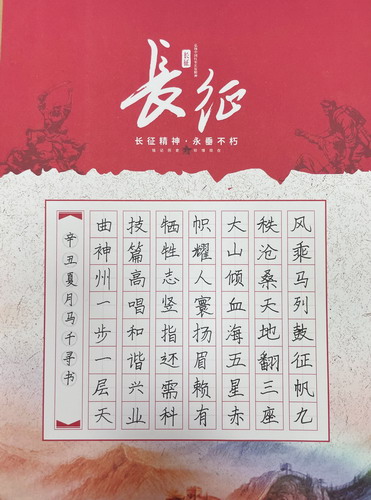 長征
长征
长征精神·永垂不朽
风乘马列鼓征帆九
秩沧桑天地翻三座
大山倾血海五星赤
帜耀人寰扬眉赖有
牺牲志竖指还需科
技篇高唱和谐兴业
曲神州一步一层天
辛丑夏月马千寻书